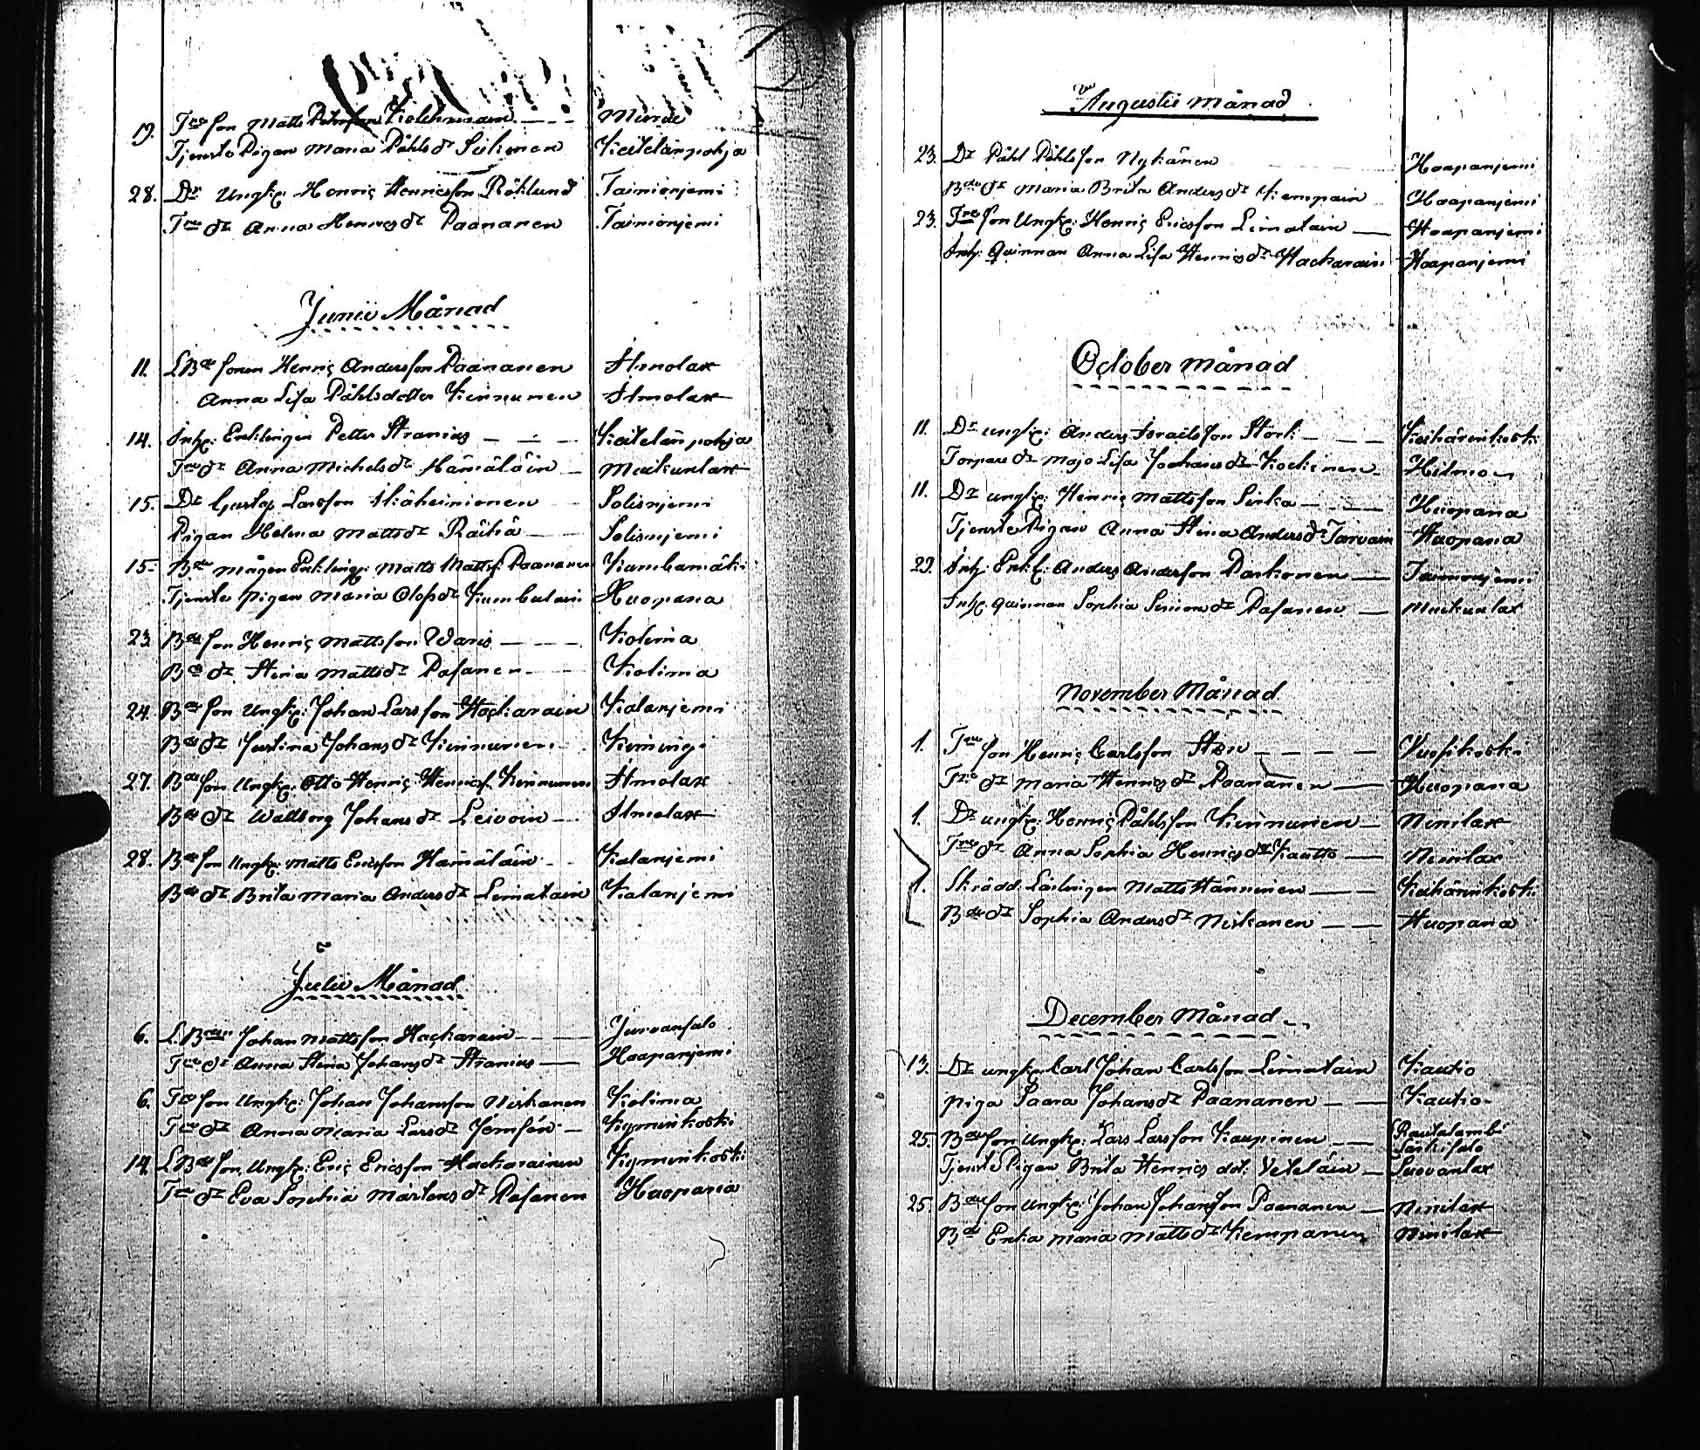 19. Tre Son Matts Kolehmain Muroe
Tjenste Pigan Maria Påhls dr Keitelänpohja
28. Dr Ungk: Henric Henricsson Röklund Tainionjemi
Tre dr Anna Henrics dr Paananen Tainionjemi
Junii Månad
11. LBde sonen Henric Andersson Paananen Ilmolax
Anna Lisa Påhlsdotter Kinnunen Ilmolax
14. Inh: Enklingen Petter Stranius Keitelänpohja
Tre dr Anna Michels dr Hämäläin Muikunlax
15. Dr Gustaf Larsson Solisnjemi
Pigan Helena Matts dr Räihä Solisnjemi
15. Bde mågen Enkling: Matts Matts: Paananen Kumbumäki
Tjenste pigan Maria Olofs dr Kumbulain Huopana
23. Bde Son Henric Mattsson Waris Kolima
Bde dr Stina Matts dr Pasanen Kolima
24. Bde Son Ungk: Johan Larsson Hackarain Kalanjemi
Bde dr Justina Johans dr Kinnunen Kiminge
27. Bde Son Ungk: Otto Henric Henrics: Kinnunen Ilmolax
Bde dr Wallborg Johans dr Leivoin Ilmolax
28. Bde Son Ungk: Matts Ericsson Hämäläin Kalanjemi
Bde dr Brita Maria Anders dr Leinatain Kalanjemi
Julii Månad
6. L. Johan Mattsson Hackarain Jurvansalo
Tre dr Anna Stina Johans dr Stranius Haapanjemi
6. Tre Son Ungk: Johan Johansson Niskanen Kolima
Tre dr Anna Maria Lars dr Jemsén Kyminkoski
14. LBde Son Ungk: Eric Ericsson Hackarainen Kyminkoski
Tre dr Eva Sophia Mårtens dr Pasanen Huopana
Augustii månad
23. Dr Påhl Påhlsson Nykänen Haapanjemi
Bde dr Maria Brita Anders dr Kempain Haapanjemi
23. Tre Son Ungk: Henric Ericsson Leinatain Haapanjemi
Inh: Quinnan Anna Lisa Henrics dr Hackarain Haapanjemi
October månad
11. Dr ungk: Anders Israelsson Stork Keihärinkoski
Torpare dr Maja Lisa Johans dr Kockinen Hilmo
11. Dr ungk: Henric Mattsson Sirka Huopana
Tjenste Pigan Anna Stina Anders dr Tarvain Huopana
29. Inh: Enkl: Anders Andersson Parkonen Tainionjemi
Inh: quinnan Sophia Simons dr Pasanen Muikunlax
November Månad
1. Tre Son Henric Carlsson Sten Vuosikoski
Tre dr Maria Henrics dr Paananen Huopana
1. Dr ungk: Henric Påhlsson Kinnunen Ninilax
Tre dr Anna Sophia Henrics dr Kautto Ninilax
1. Skrädd: Lärlingen Matts Hänninen Keihärinkoski
Bde dr Sophia Anders dr Niskanen Huopana
December Månad
13. Dr ungk: Carl Johan Carlsson Leinatain Kautio
piga Saara Johans dr Paananen Kautio
25. Bde Son Ungk: Lars Larsson Kaupinen Rautalambi Särkisalo
Tjenste Pigan Brita Henrics dot: Viteläin Suovanlax
25. Bde Son Ungk: Johan Johansson Paananen Ninilax
Bde Erika Maria Matts dr Kempanen Ninilax